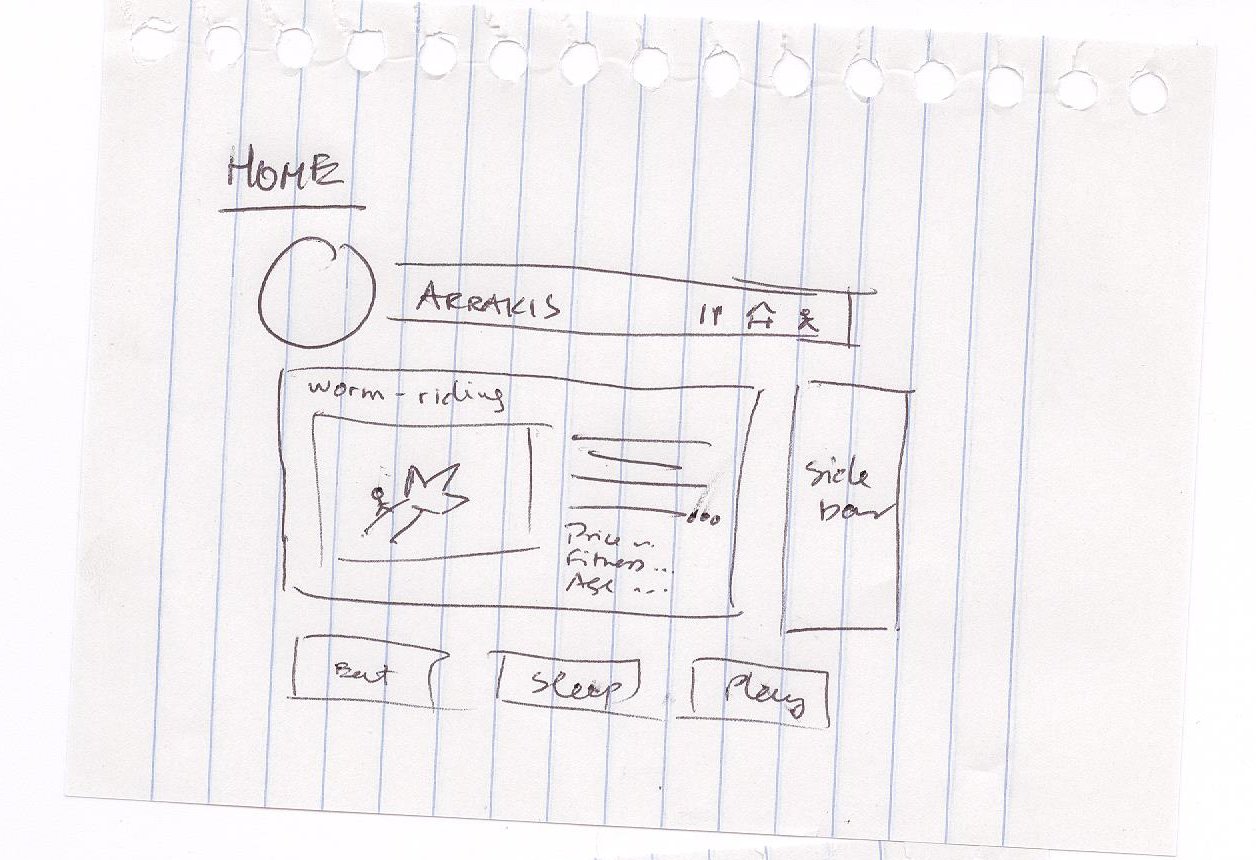 HOME
ARRAKIS
worm-riding
Price ...
Fitness ...
Age ...
side
bar
Eat
Sleep
Play